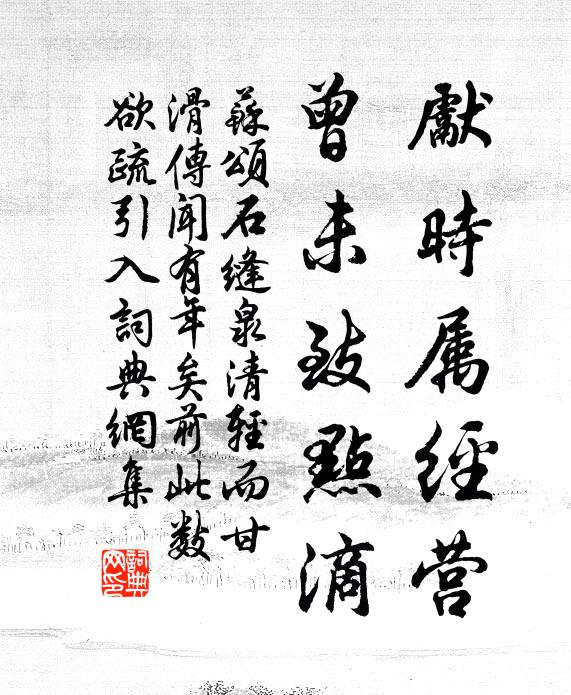 獻時属經营
曾未致點滴
蘇頌石縫泉清輕而甘
滑傳聞有年矣前此數
欲疏引入詞典網集
詞典网印